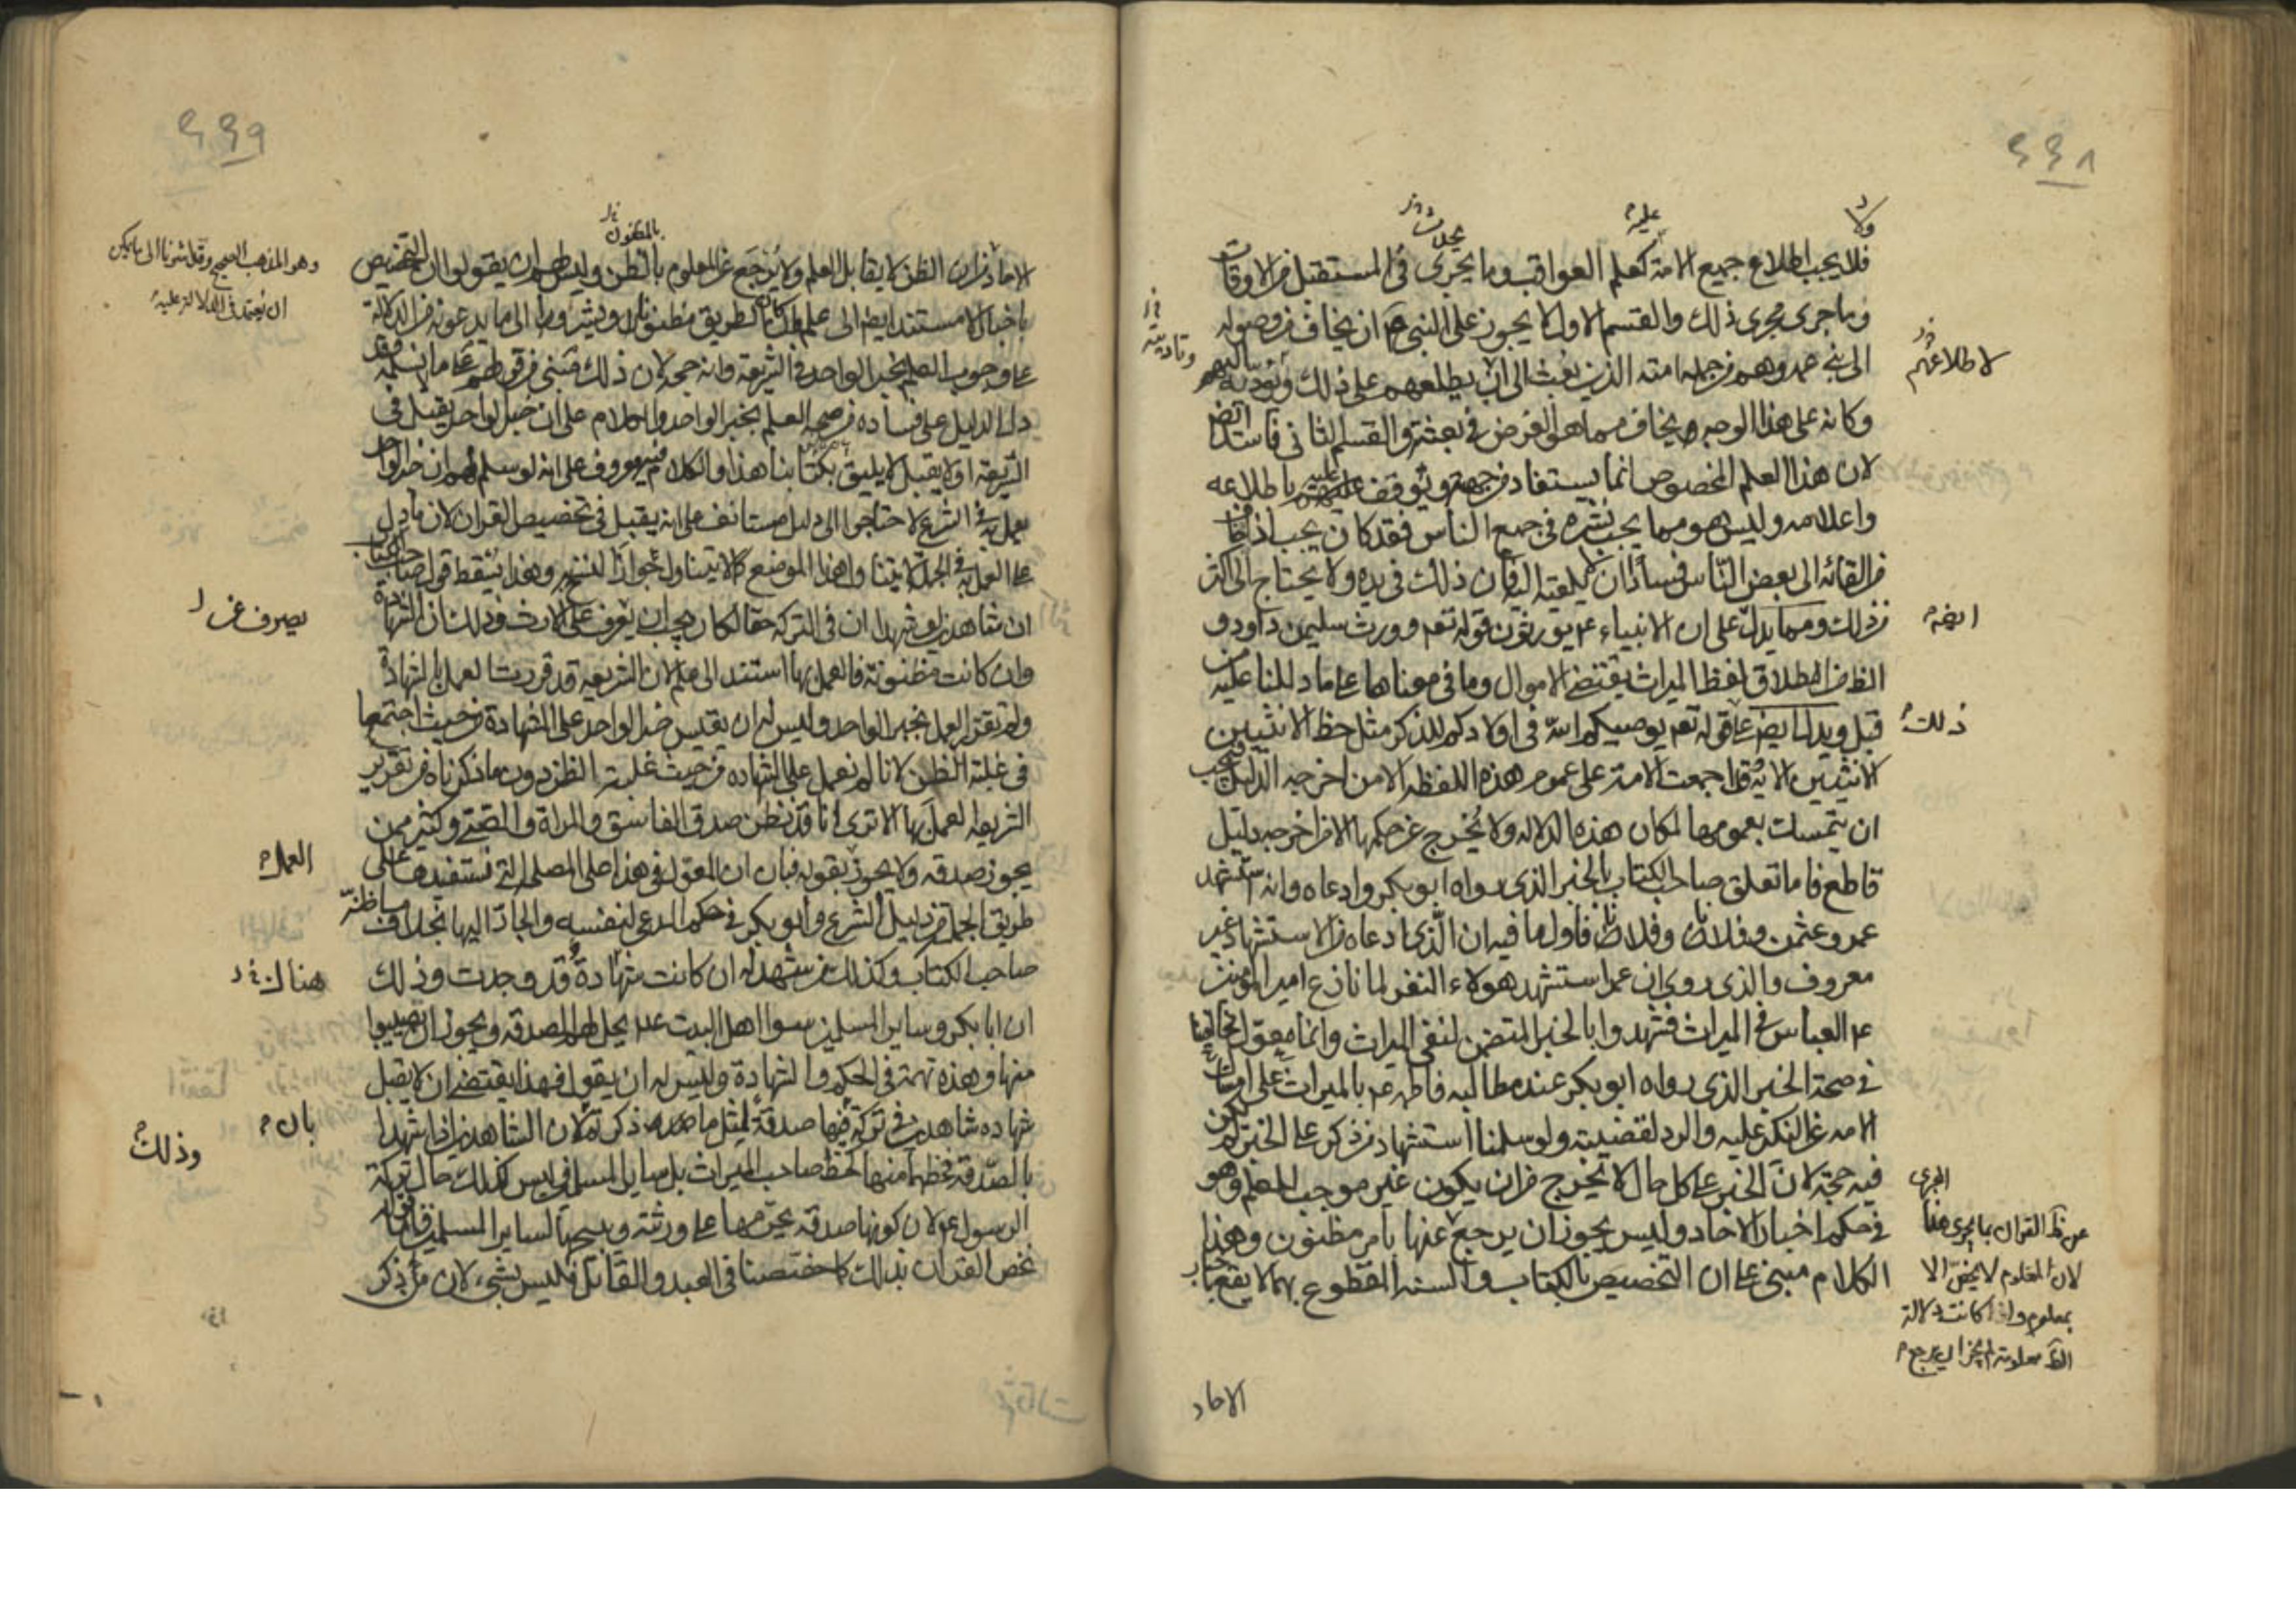 ٤٤٨
ولا
عليه
بخلاف
فلا يجب اطلاع جميع الامة كعلم العواقب وما يجرى فى المستقبل من الاوقات
وما جرى مجرى ذلك والقسم الاول لا يجوز على النبى ان يخاف من وصوله
وتاديته
الى بنى عمه وهم من جملة امته الذين بعث الى ان يطلعهم على ذلك ويؤديه اليهم
لاطلاعهم
وكانه على هذا الوجه يخاف مما هو الغرض فى بعثته والقسم الثانى فاسد ايضا
لان هذا العلم المخصوص انما يستفاد من جهته ويوقف عليه باطلاعه
واعلامه وليس هو مما يجب نشره فى جميع الناس فقد كان يجب اذا خاف
من القائه الى بعض الناس فسادا ان لا يلقيه اليه فان ذلك فى يده ولا يحتاج الى اكثر
من ذلك ومما يدل على ان الانبياء ع م يورثون قوله تعم وورث سليمن داود و
ايضم
الظ من اطلاق لفظ الميراث يقتضى الاموال وما فى معناها على ما دللنا عليه من
قبل ويدل ايضم على قوله تعم يوصيكم الله فى اولادكم للذكر مثل حظ الانثيين
ذلك
الانثيين الاية وقد اجمعت الامة على عموم هذه اللفظه الا من اخرجه الدليل فيجب
ان يتمسك بعمومها لمكان هذه الدلاله ولا يخرج عن حكمها الا من اخرجه دليل
قاطع فاما تعلق صاحب الكتاب بالخبر الذى رواه ابو بكر وادعاه وانه استشهد
عمر وعثمن وفلانا وفلانا فاول ما فيه ان الذى ادعاه من الاستشهاد غير
معروف والذى روى ان عمر استشهد هولاء النفر لما تنازع امير المؤمنين
ع م العباس فى الميراث فشهدوا بالخبر المتضمن لنفى الميراث وانما معول مخالفينا
فى صحة الخبر الذى رواه ابو بكر عند مطالبه فاطمه ع م بالميراث على امساك
الامه عن النكير عليه والرد لقضيته ولو سلمنا استشهاد من ذكر على الخبر لم يكن
فيه حجة لان الخبر على كل حال لا يخرج من ان يكون غير موجب للعلم وهو
فى حكم اخبار الاحاد وليس يجوز ان يرجع عنها بامر مظنون وهذا
الكلام مبنى على ان التخصيص بالكتاب والسنه المقطوع بهما لا يقع باخبار
عن ظ القران بما يجرى هذا
المجرى
لان المعلوم لا يخص الا
بمعلوم واذا كانت دلالة
الظ معلومة لم يجز ان يرجع
الاحاد
٤٤٩
بالمظنون
الاحاد فان الظن لا يقابل العلم ولا يرجع عن المعلوم بالظن وليس لهم ان يقولوا ان التخصيص
وهو المذهب الصحيح وقد اشرنا الى ما يمكن
ان يعتمد فى الدلالة عليه
باخبار الاحاد مستند ايضم الى علم وان كان الطريق مظنونا ويشيروا الى ما يدعونه من الدلالة
على وجوب العلم بخبر الواحد فى الشريعة وانه حجه لان ذلك مبنى من قولهم على ما لا نسلمه وقد
دل الدليل على فساده من صحة العلم بخبر الواحد والكلام على ان خبر الواحد يقبل فى
الشريعه او لا يقبل لا يليق بكتابنا هذا والكلام فيه معروف على انه لو سلم لهم ان خبر الواحد
يعمل به فى الشرع لاحتاجوا الى دليل مستانف على انه يقبل فى تخصيص القران لان ما دل
على العمل به فى الجملة لا يتناول هذا الموضع كما لا يتناول جواز النسخ به وهذا يسقط قول صاحب الكتاب
ان شاهدين لو شهدا ان فى التركه حقا لكان يجب ان يصرف على الارث وذلك ان الشهادة
يصرف عن
وان كانت مظنونة فالعمل بها استند الى علم لان الشريعه قد قررت العمل بالشهادة
ولم تقرر العمل بخبر الواحد وليس له ان يقيس خبر الواحد على الشهادة من حيث اجتمعا
فى غلبة الظن لانا لم نعمل على الشهاده من حيث غلبت الظن دون ما ذكرناه من تقرير
الشريعه العمل بها الا ترى انا قد نظن صدق الفاسق والمراة والصبى وكثير ممن
يجوز صدقه ولا يجوز بقوله فبان ان المعول فى هذا على المصلحة التى نستفيدها على
العمل
طريق الجملة من دليل الشرع وابو بكر فى حكم المدعى لنفسه والجار اليها بخلاف ما ظنه
صاحب الكتاب وكذلك من شهد له ان كانت شهادة قد وجدت وذلك
هناك
ان ابا بكر وساير المسلمين سوا اهل البيت ع م يحل لهم الصدقه ويجوز ان يصيبوا
منها وهذه تهمة فى الحكم والشهادة وليس له ان يقول فهذا يقتضى ان لا يقبل
شهاده شاهدين فى تركة فيها صدقة لمثل ما ذكرتم لان الشاهدين اذا شهدا
بان
وذلك
بالصدقه فحظهما منها كحظ صاحب الميراث بل ساير المسلمين وليس كذلك حال تركة
الرسول ع م لان كونها صدقه يحرمها على ورثته ويبيحها لساير المسلمين فاما قوله
نخص القران بذلك كما خصصنا فى العبد والقاتل فليس بشىء لان من ذكر